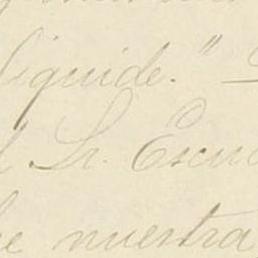 liquide."
Sr. Escu
nuestra